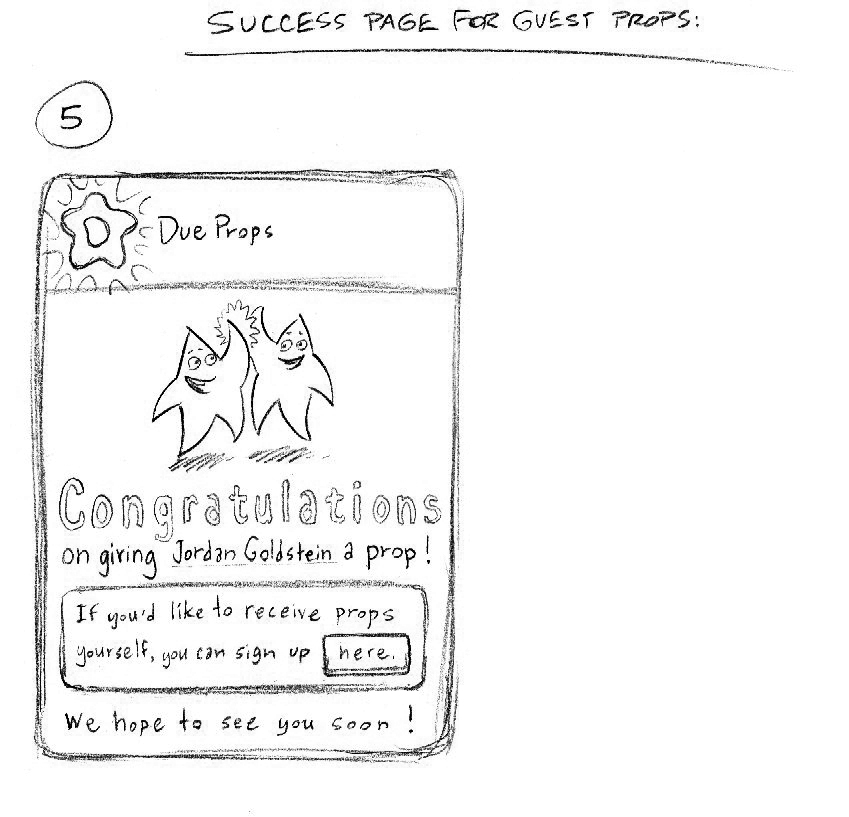 SUCCESS PAGE FOR GUEST PROPS:
5
D
Due Props
Congratulations
on giving Jordan Goldstein a prop!
If you'd like to receive props
yourself, you can sign up here.
We hope to see you soon!